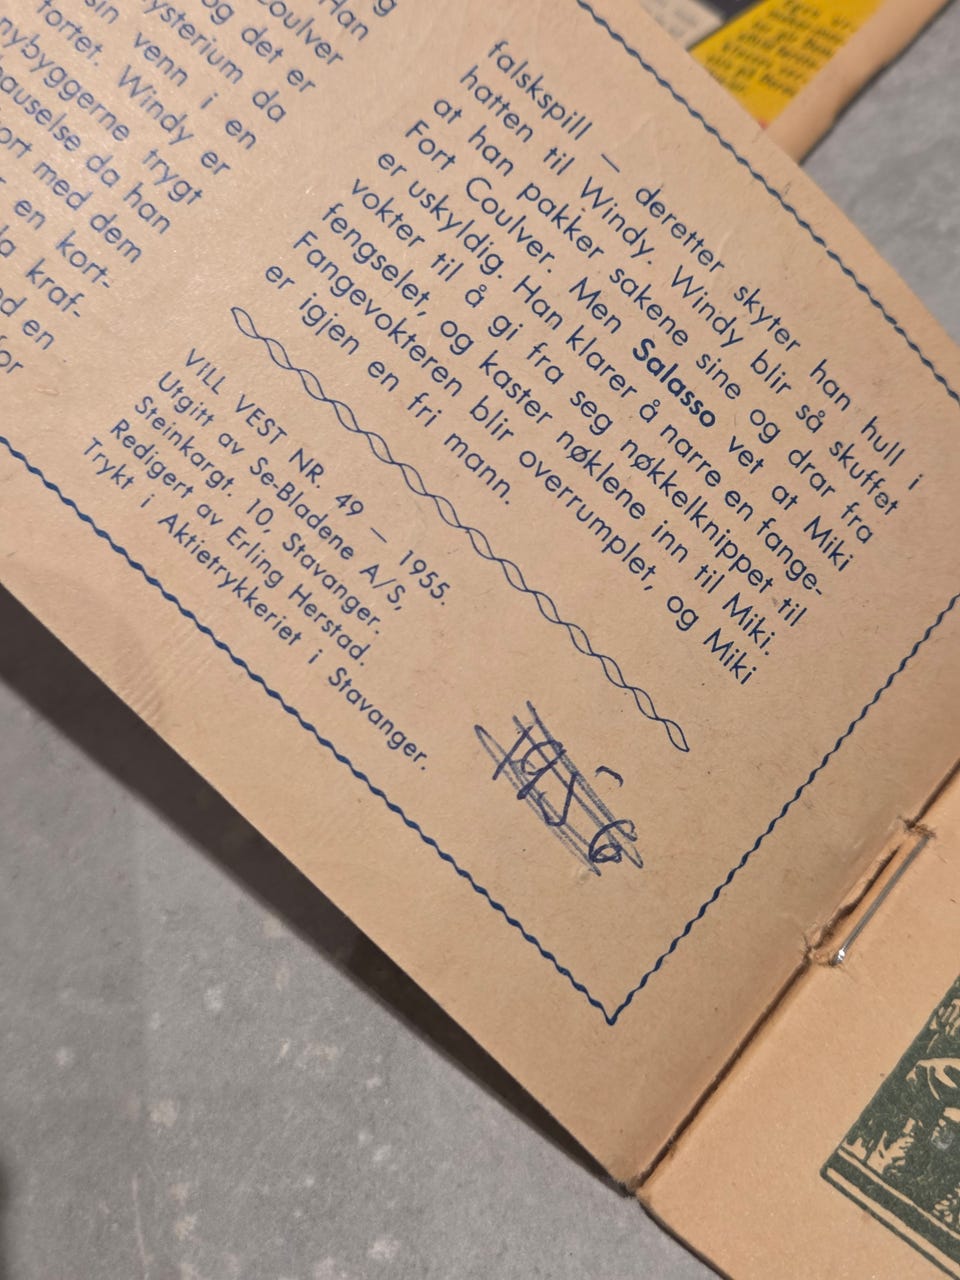 og
Han
Coulver
og det er
mysterium da
sin venn i en
fortet. Windy er
nybyggerne trygt
pauselse da han
ort med dem
en kort-
kraf-
en
for
falskspill — deretter skyter han hull i
hatten til Windy. Windy blir så skuffet
at han pakker sakene sine og drar fra
Fort Coulver. Men Salasso vet at Miki
er uskyldig. Han klarer å narre en fange-
vokter til å gi fra seg nøkkelknippet til
fengselet, og kaster nøklene inn til Miki.
Fangevokteren blir overrumplet, og Miki
er igjen en fri mann.
VILL VEST NR. 49 — 1955.
Utgitt av Se-Bladene A/S,
Steinkargt. 10, Stavanger.
Redigert av Erling Herstad.
Trykt i Aktietrykkeriet i Stavanger.
1956